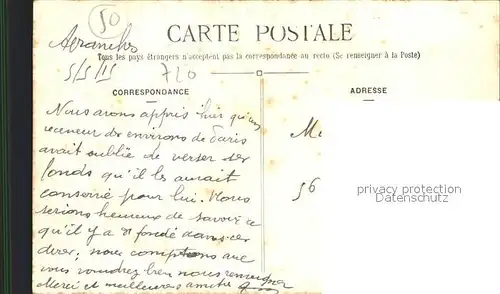 50
Avranches
CARTE POSTALE
Tous les pays étrangers n'acceptent pas la correspondance au recto (Se renseigner à la Poste)
5/5/15
720
CORRESPONDANCE
ADRESSE
Nous avons appris hier qu'un
receveur des environs de Paris
avait oublié de verser des
fonds qu'il les aurait
conservé pour lui. Nous
serions heureux de savoir ce
qu'il y a de fondé dans ces
dires; nous comptons que
vous voudrez bien nous renseigner
Merci et meilleures amitiés
M
56
privacy protection
Datenschutz